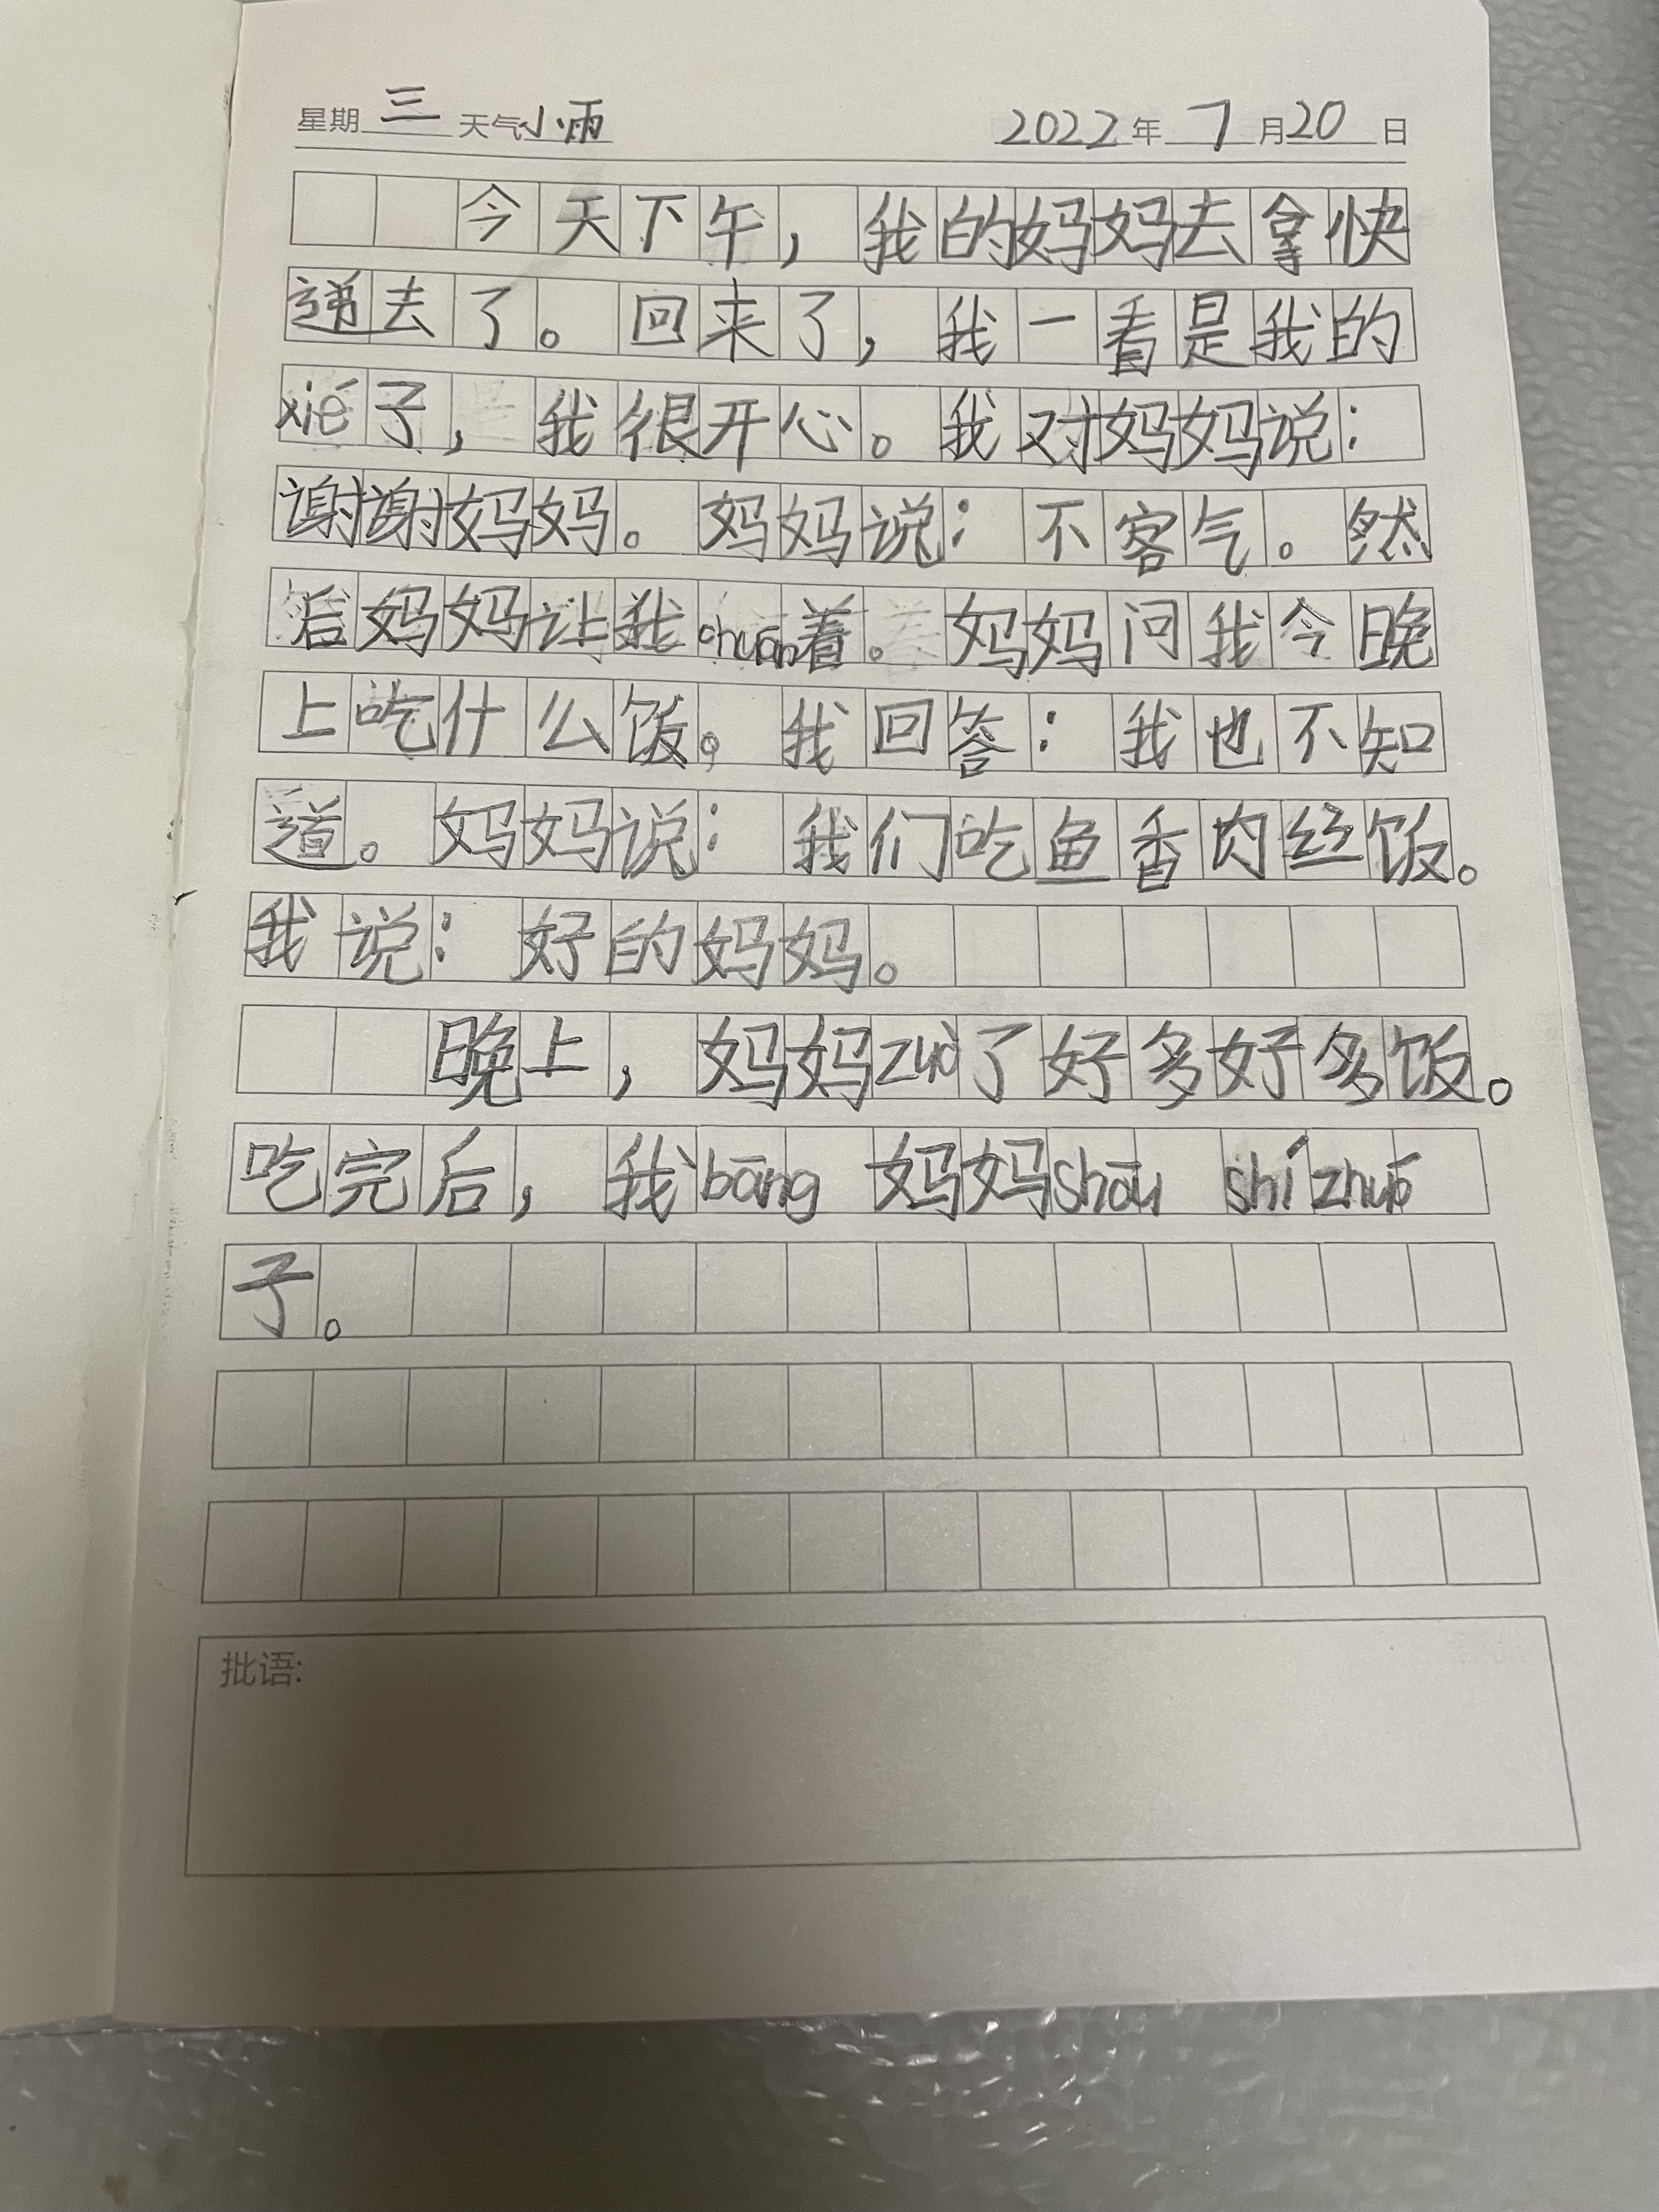 星期三 天气小雨 2022年7月20日
今天下午，我的妈妈去拿快
递去了。回来了，我一看是我的
xié子，我很开心。我对妈妈说：
谢谢妈妈。妈妈说：不客气。然
后妈妈让我chuān着。妈妈问我今晚
上吃什么饭。我回答：我也不知
道。妈妈说：我们吃鱼香肉丝饭。
我说：好的妈妈。
晚上，妈妈zuò了好多好多饭。
吃完后，我bāng 妈妈shōu shí zhuō
子。
批语: